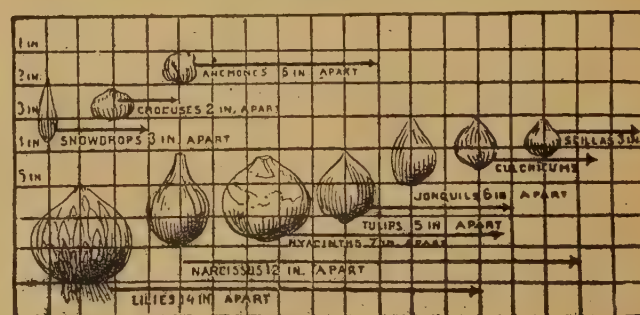 1 IN
2 IN.
ANEMONES 6 IN APART
3 IN
CROCUSES 2 IN. APART
4 IN
SNOWDROPS 3 IN. APART
SCILLAS 3 IN
COLCHICUMS
5 IN
JONQUILS 6 IN APART
TULIPS. 5 IN APART
HYACINTHS. 7 IN. APART
NARCISSUS 12 IN. APART
LILIES 14 IN APART